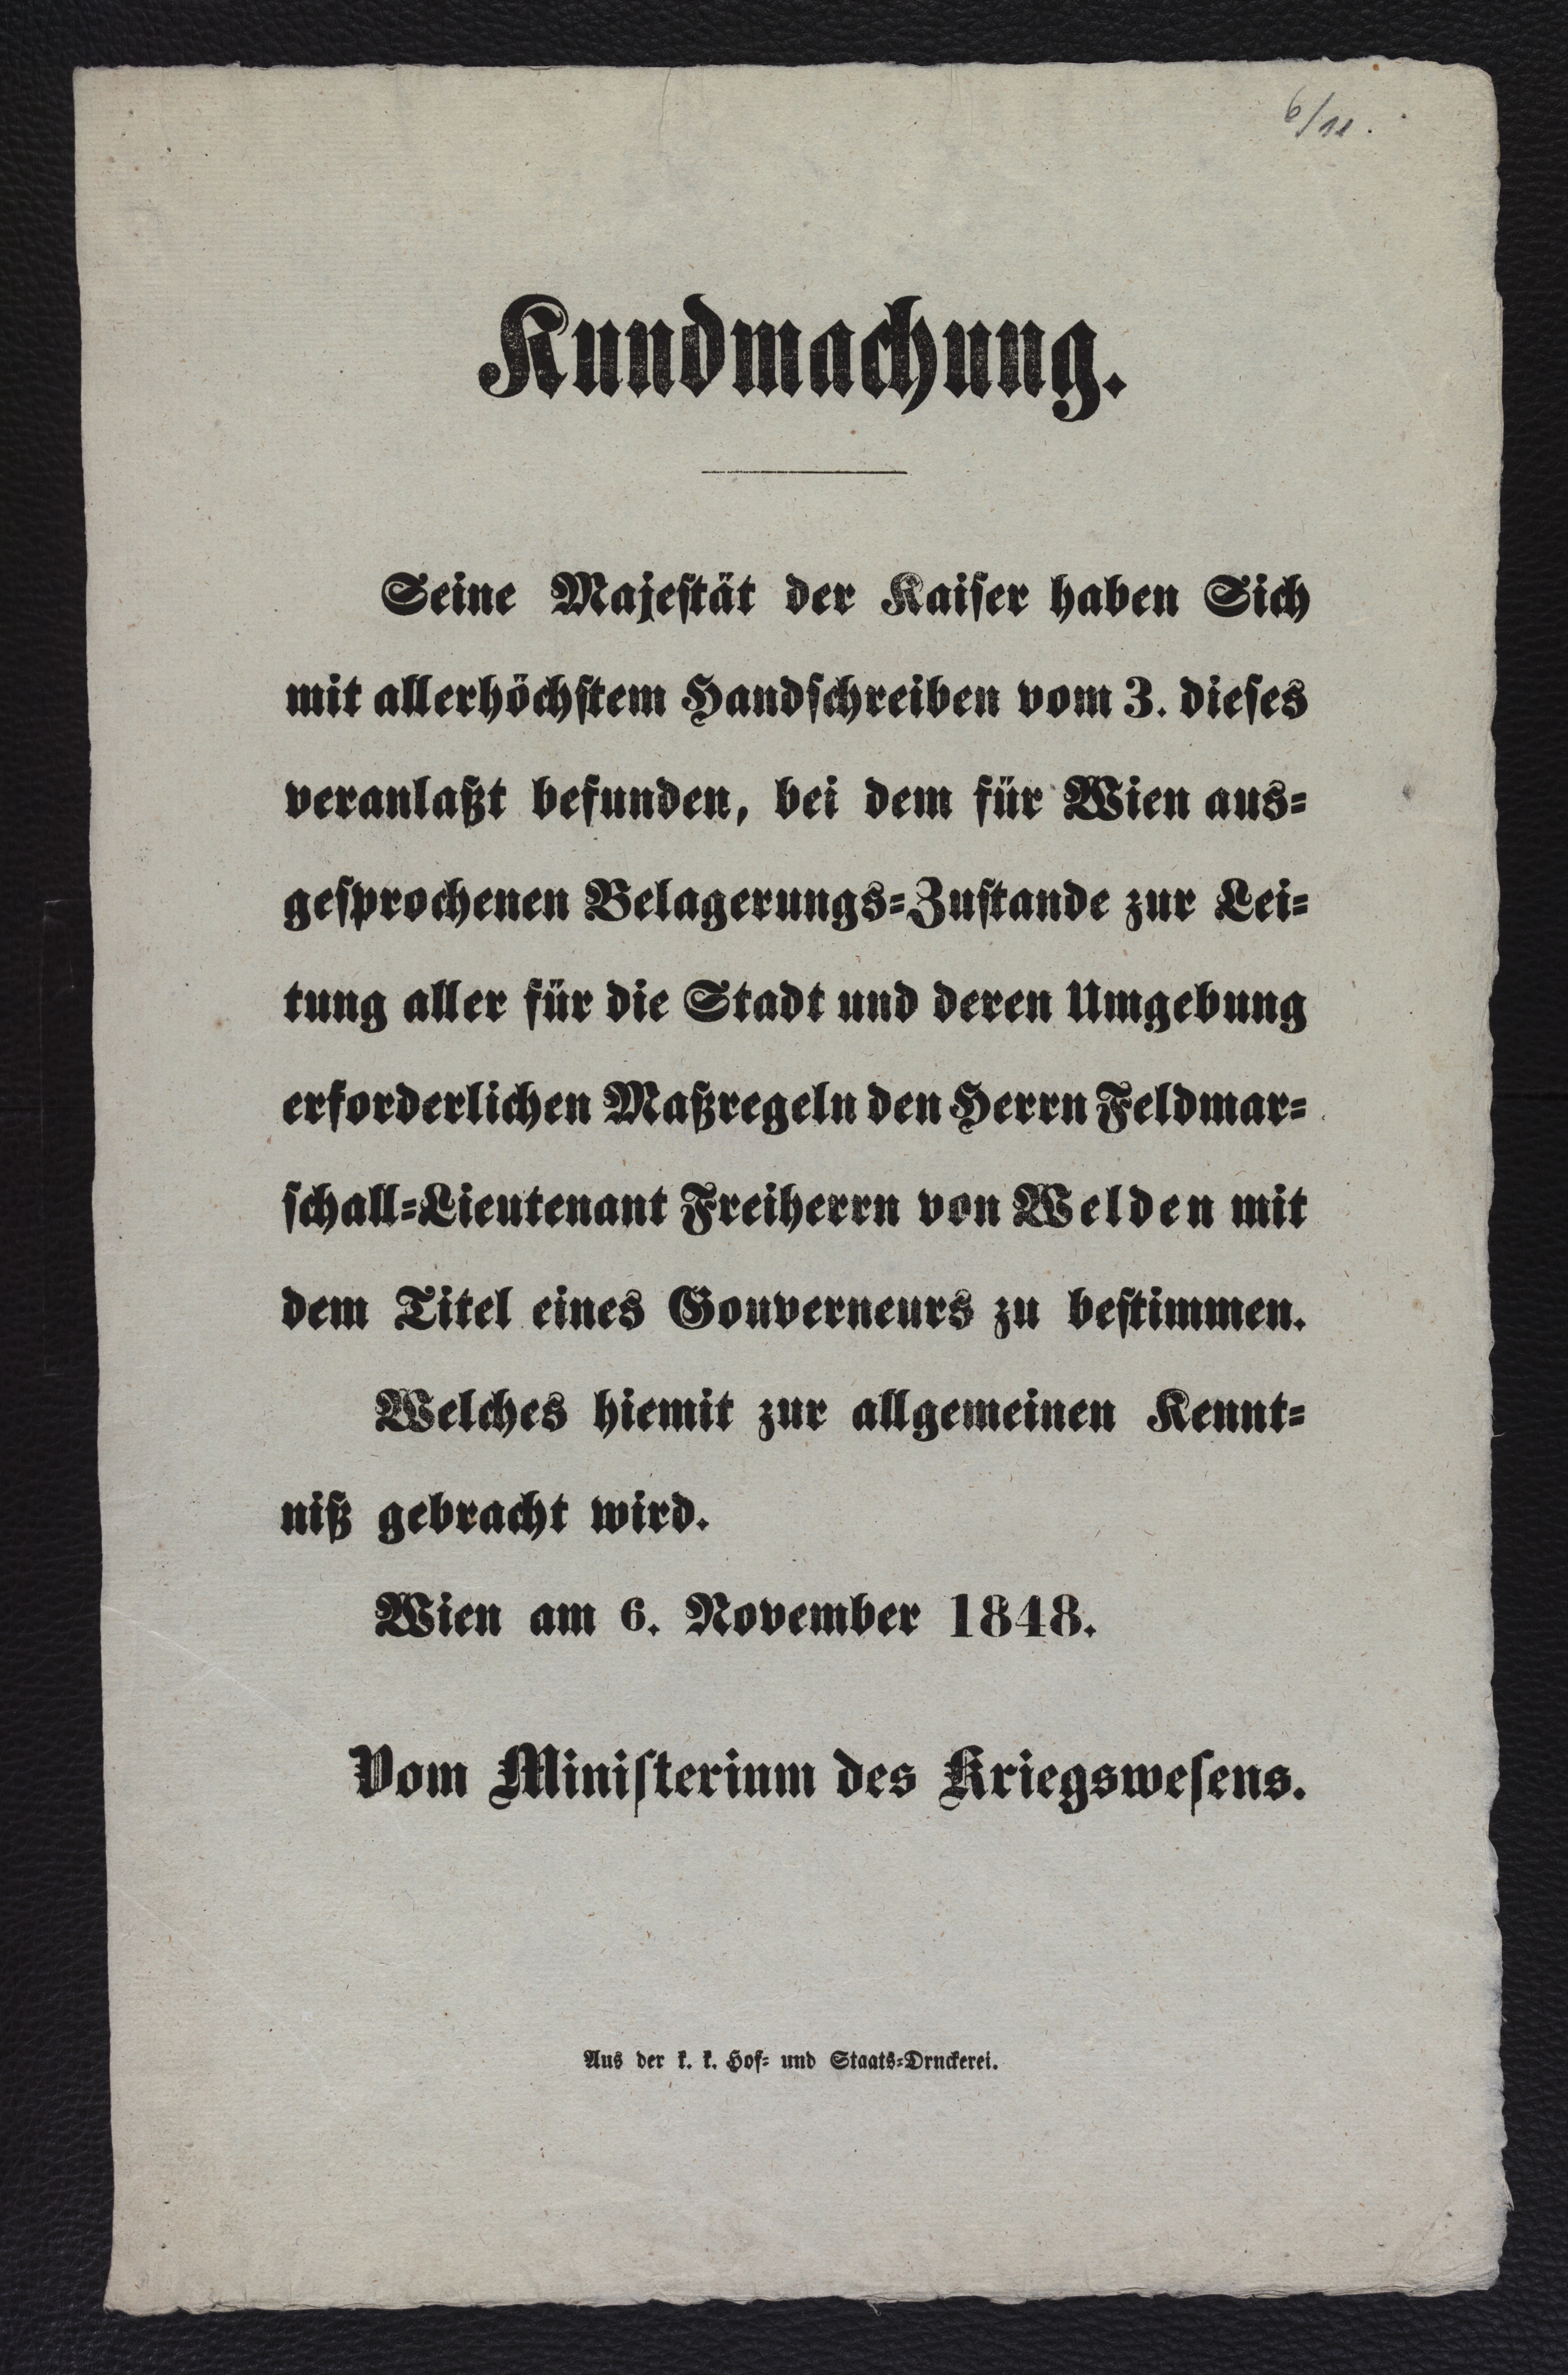 6/11.
Kundmachung.
Seine Majestät der Kaiser haben Sich
mit allerhöchstem Handschreiben vom 3. dieses
veranlaßt befunden, bei dem für Wien aus=
gesprochenen Belagerungs=Zustande zur Lei=
tung aller für die Stadt und deren Umgebung
erforderlichen Maßregeln den Herrn Feldmar=
schall=Lieutenant Freiherrn von Welden mit
dem Titel eines Gouverneurs zu bestimmen.
Welches hiemit zur allgemeinen Kennt=
niß gebracht wird.
Wien am 6. November 1848.
Vom Ministerium des Kriegswesens.
Aus der k. k. Hof= und Staats=Druckerei.